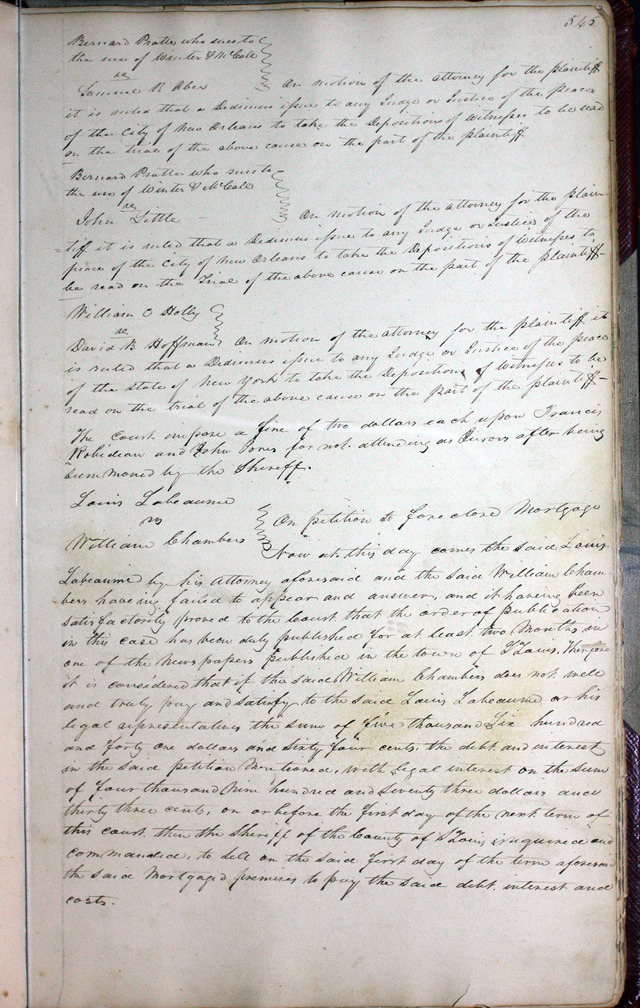 545
Bernard Pratte who sues to
the use of Winter & McCale
vs
Samuel R Ober On motion of the attorney for the plaintiff
it is ruled that a Dedimus issue to any Judge or Justice of the peace
of the City of New Orleans to take the Depositions of Witnesses to be read
on the trial of the above cause on the part of the plaintiff
Bernard Pratte who sues to
the use of Winter & McCale
vs
John Little - On motion of the attorney for the plain-
tiff it is ruled that a Dedimus issue to any Judge or Justice of the
peace of the City of New Orleans to take the Depositions of Witnesses to
be read on the Trial of the above cause on the part of the plaintiff-
William O Holly
vs
David B Hoffman On motion of the attorney for the plaintiff it
is ruled that a Dedimus issue to any Judge or Justice of the peace
of the State of New York to take the Depositions of Witnesses to be
read on the trial of the above cause on the part of the plaintiff-
The Court impose a fine of two dollars each upon Francis
Robideau and John Jones for not attending as Jurors after being
Summoned by the Sheriff.
Louis Labeaume
vs
William Chambers On petition to foreclose Mortgage
Now at this day comes the said Louis
Labeaume by his Attorney aforesaid and the said William Cham-
bers having failed to appear and answer, and it having been
satisfactorily proved to the Court that the order of publication
in this case has been duly published for at least two Months in
one of the Newspapers published in the town of St Louis, Therefore
it is considered that if the said William Chambers does not well
and truly pay and satisfy to the said Louis Labeaume or his
legal representatives the sum of five thousand Six hundred
and forty one dollars and Sixty four cents, the debt and interest
in the said petition Mentioned, with legal interest on the sum
of four thousand Nine hundred and Seventy three dollars and
thirty three cents, on or before the first day of the next term of
this court, then the Sheriff of the County of St Louis is required and
commanded, to sell on the said first day of the term aforesaid
the said Mortgaged premises to pay the said debt interest and
costs.